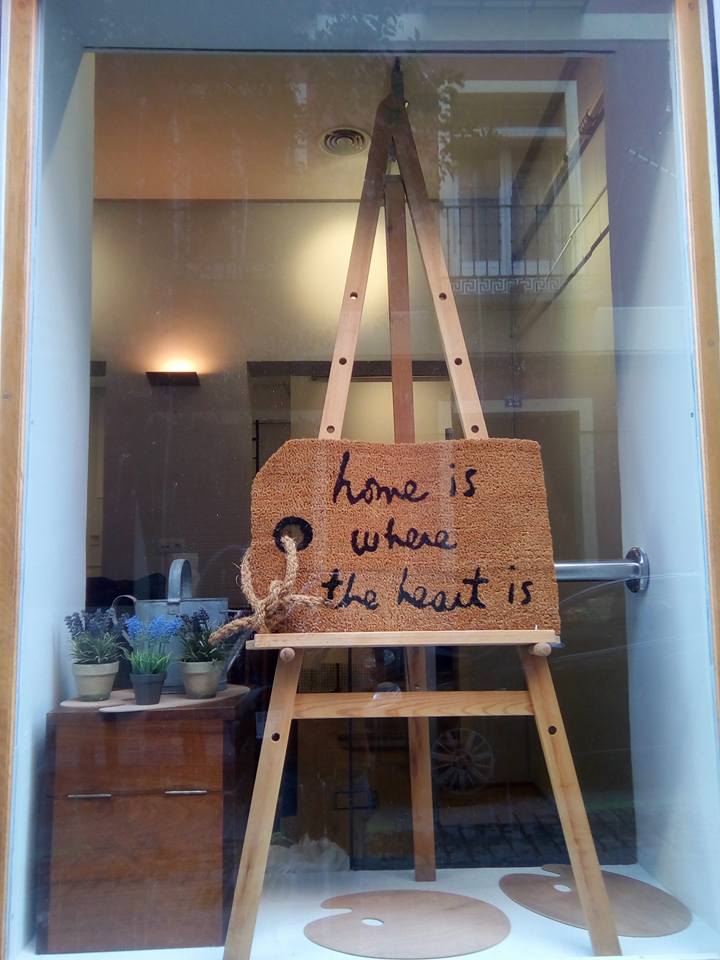 home is
where
the heart is